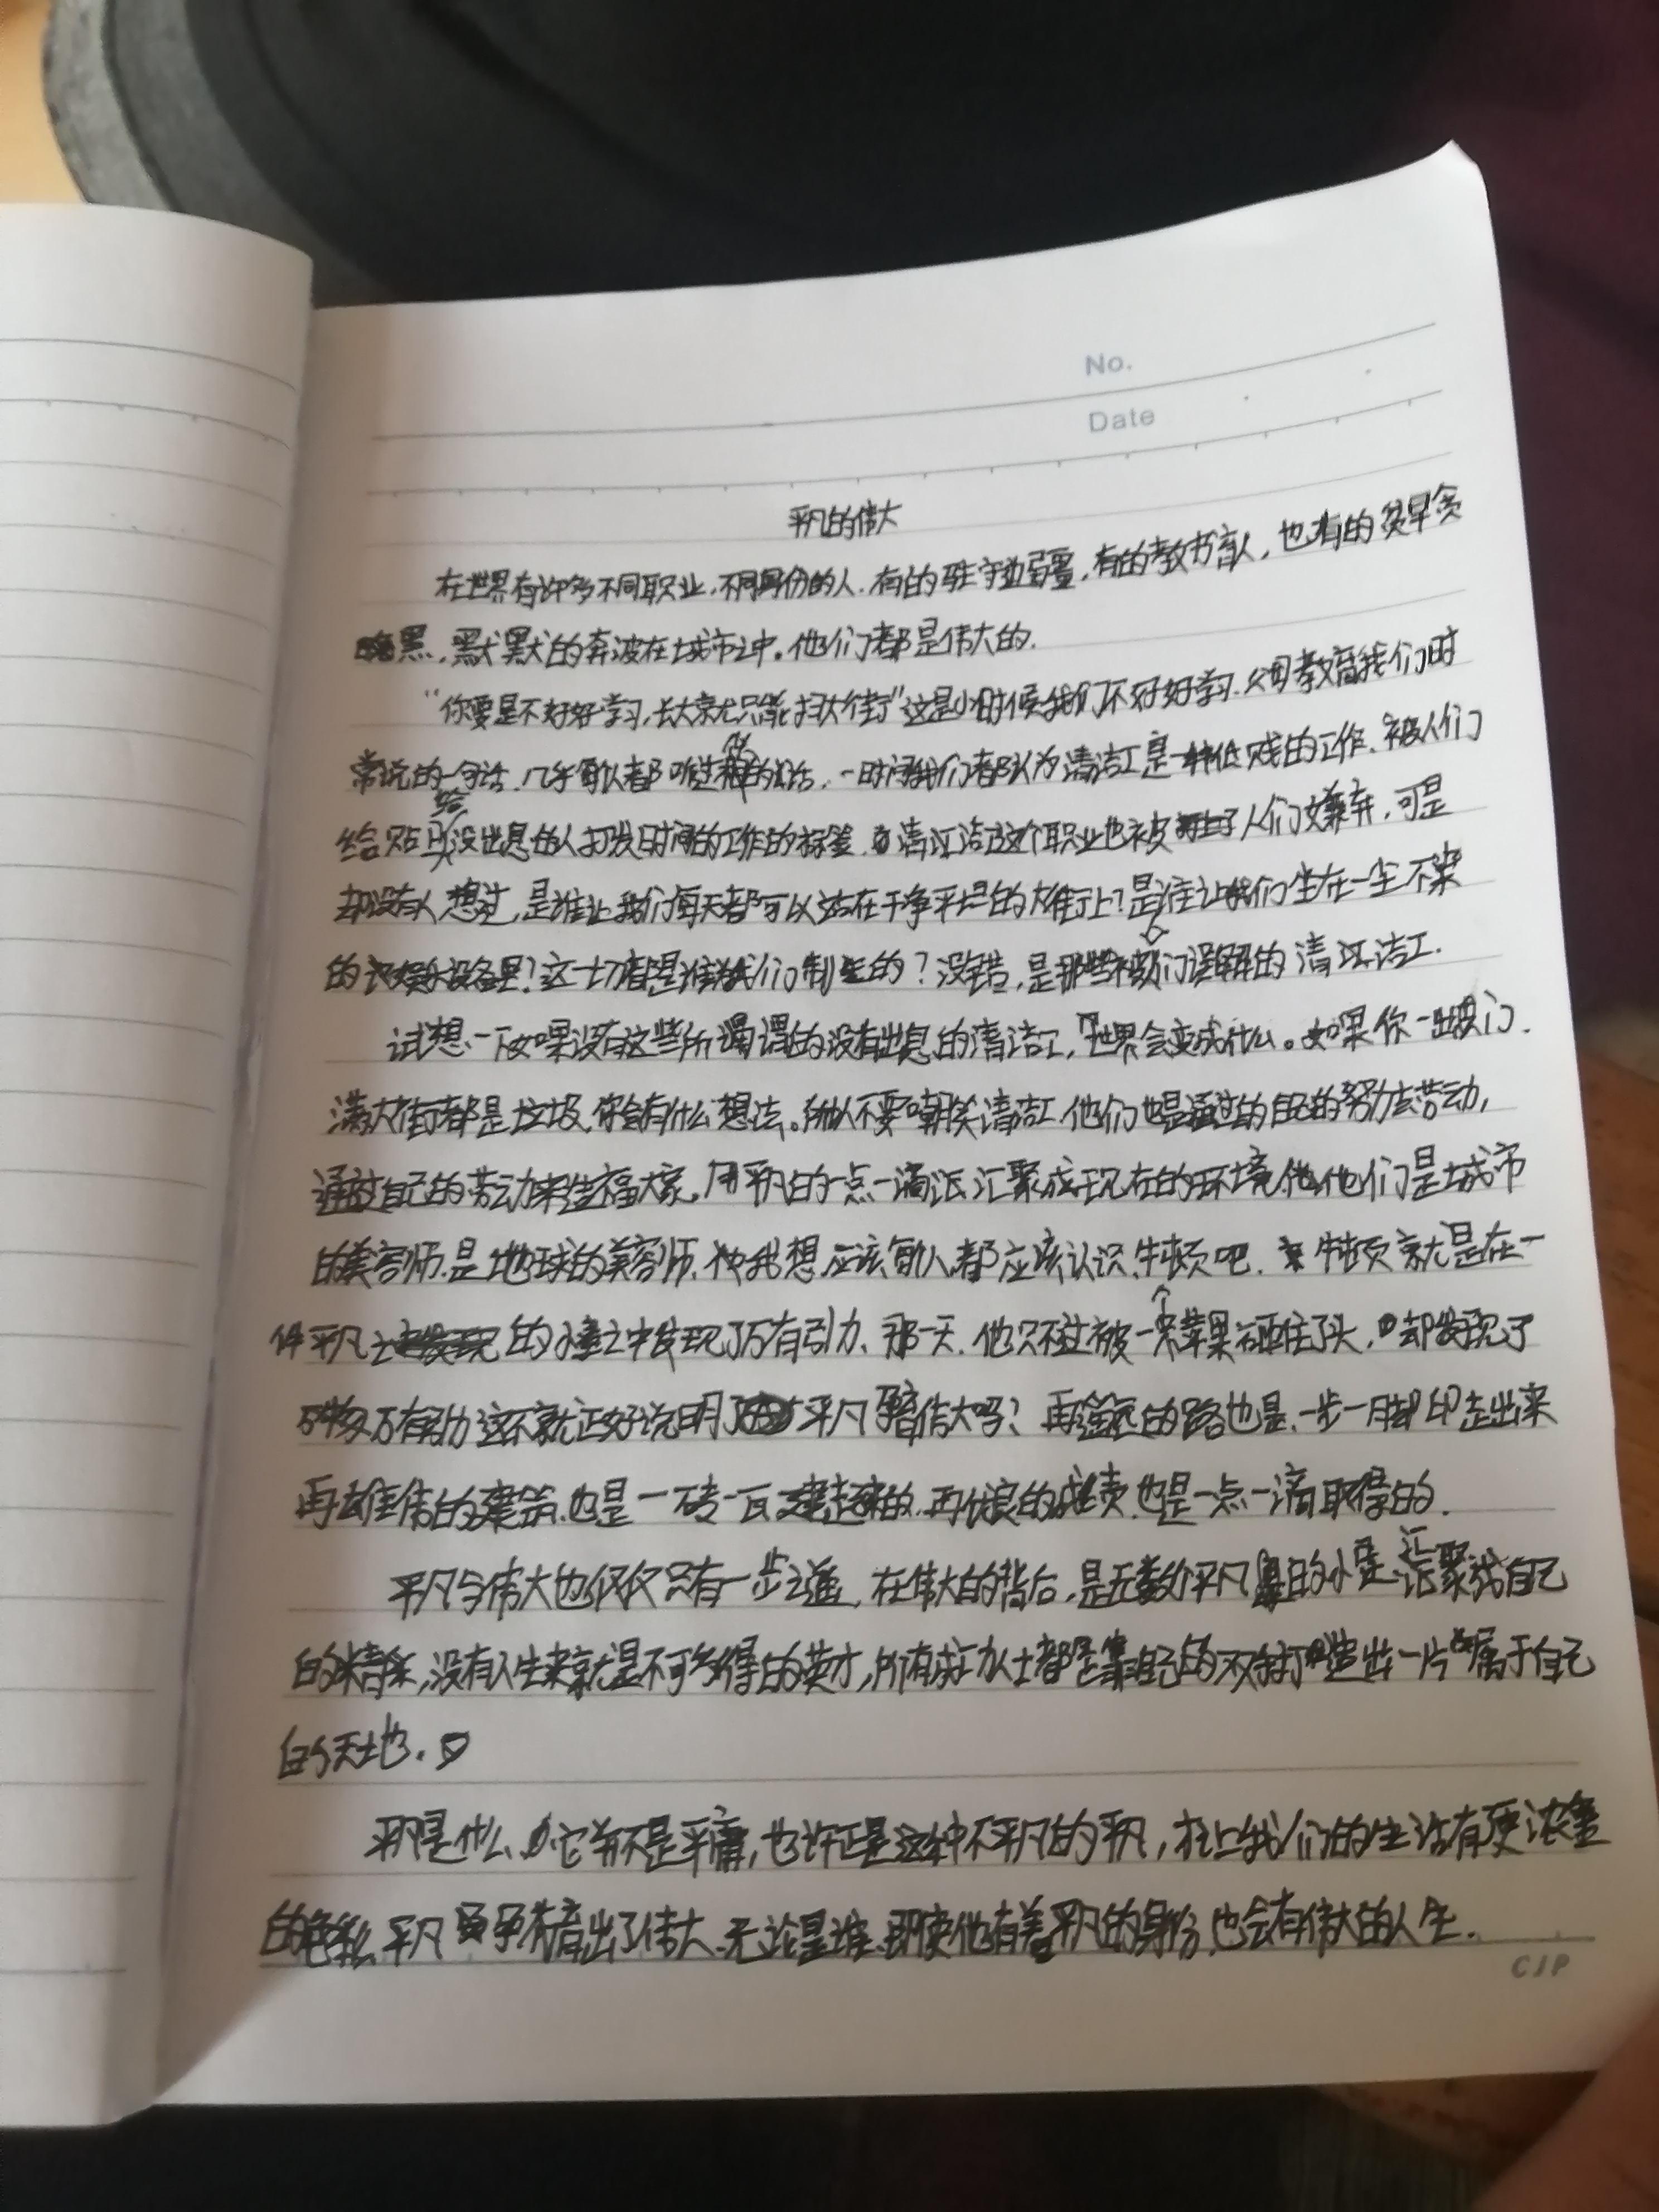 No.
Date
平凡的伟大
在世界有许多不同职业,不同身份的人.有的驻守边疆,有的教书育人,也有的贪早贪
黑,默默的奔波在城市之中。他们都是伟大的.
“你要是不好好学习,长大就只能扫大街”这是小时候我们不好好学习.父母教育我们时
常说的一句话.几乎每人都听过的话,一时间我们都认为清洁工是一种低贱的工作.被人们
给贴给没出息的人打发时间的工作的标签.清洁这个职业也被人们嫌弃,可是
却没有人想过,是谁让我们每天都可以站在干净平坦的大街上?是谁让我们坐在一尘不染
的娱乐设备里?这一切都是谁为我们制造的?没错,是那些被人们误解的清洁工.
试想一下如果没有这些所谓的没有出息的清洁工,世界会变成什么。如果你一出门.
满大街都是垃圾.你会有什么想法。所以不要嘲笑清洁工.他们也是通过的自己的努力去劳动,
通过自己的劳动来造福大家.用平凡的一点一滴汇聚成现在的环境.他们是城市
的美容师.是地球的美容师.我想应该每人都应该认识牛顿吧.牛顿就是在一
件平凡的小事之中发现了万有引力.那一天.他只不过被一个苹果砸住了头,却发现了
万有引力这不就正好说明了平凡孕育伟大吗?再遥远的路也是一步一脚印走出来
再雄伟的建筑.也是一砖一瓦建起来的.再优良的成绩.也是一点一滴取得的.
平凡与伟大也仅仅只有一步之遥.在伟大的背后,是无数个平凡的小事汇聚成自己
的精彩,没有人生来就是不可多得的英才,所有成功人士都是靠自己的双手打造出一片属于自己
的天地.
平凡是什么.它并不是平庸,也许正是这种不平凡的平凡,才让我们的生活有更浓重
的色彩.平凡孕育出了伟大.无论是谁.即使他有着平凡的身份.也会有伟大的人生.
CJP